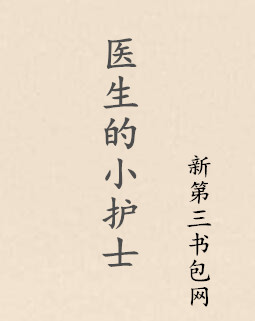 医生的小护士
新第三书包网